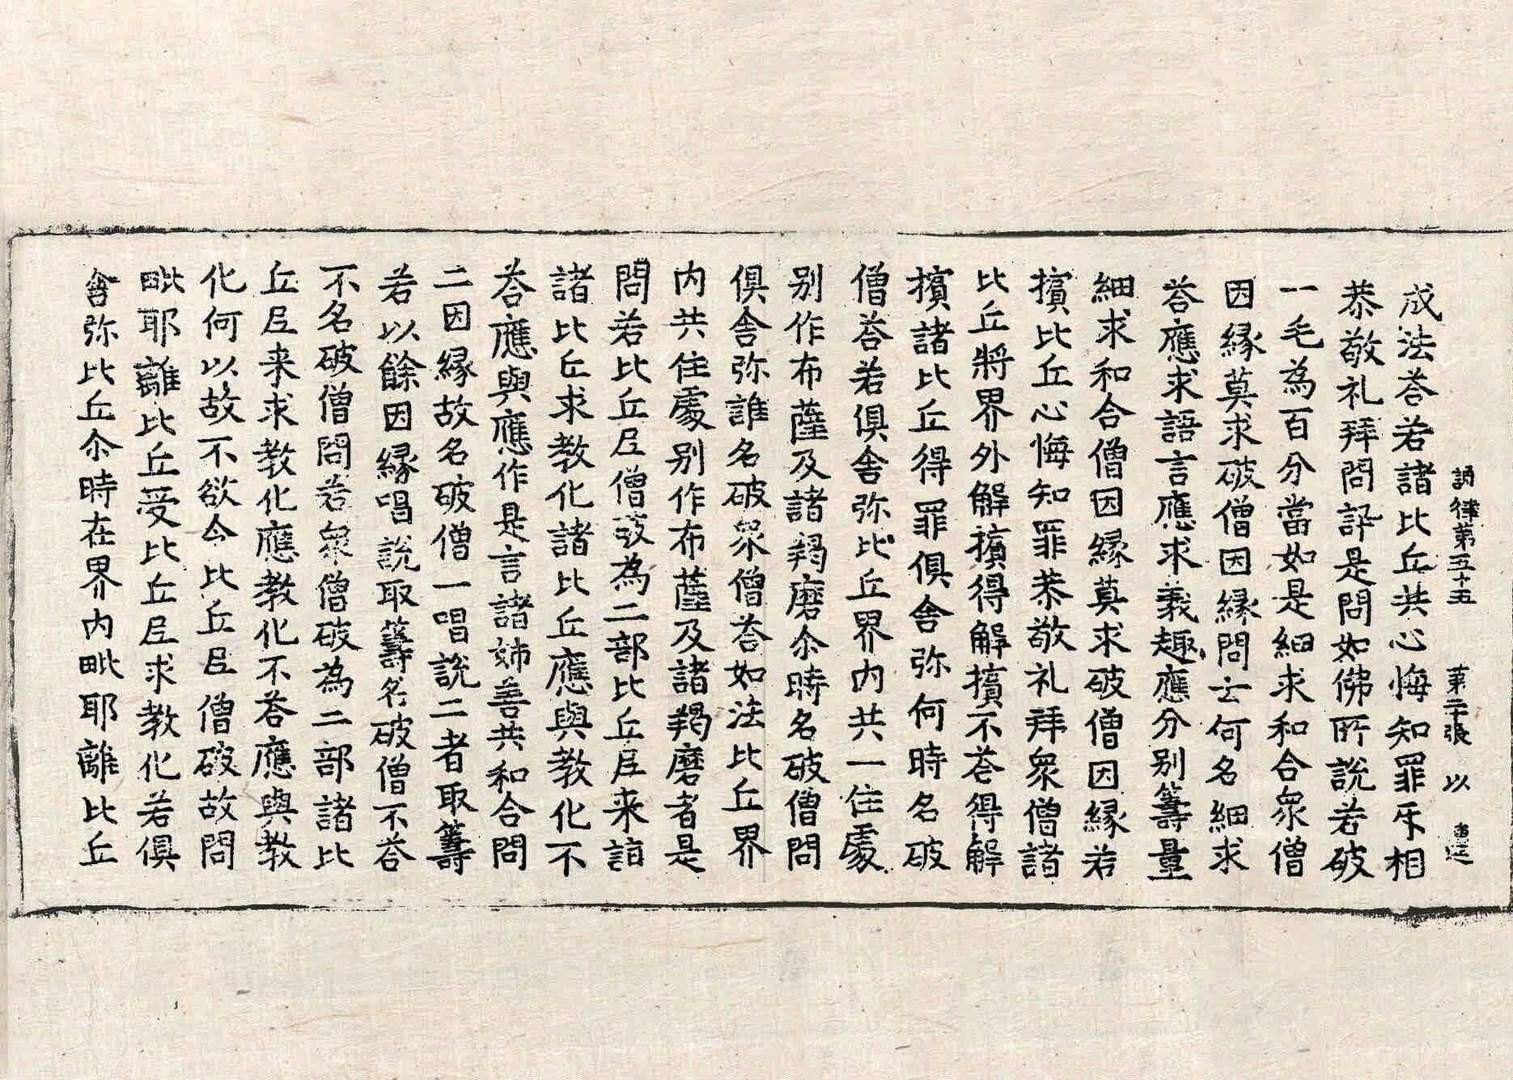 誦律第五十五 第二張 以
成法荅若諸比丘共心悔知罪不相
恭敬礼拜問訊是問如佛所說若破
一毛為百分當如是細求和合衆僧
因緣莫求破僧因緣問云何名細求
荅應求語言應求義趣應分別籌量
細求和合僧因緣莫求破僧因緣若
擯比丘心悔知罪恭敬礼拜衆僧諸
比丘將界外解擯得解擯不荅得解
擯諸比丘得罪俱舍弥何時名破
僧荅若俱舍弥比丘界內共一住處
別作布薩及諸羯磨尒時名破僧問
俱舍弥誰名破衆僧荅如法比丘界
內共住處別作布薩及諸羯磨者是
問若比丘尼僧破為二部比丘尼来詣
諸比丘求教化諸比丘應與教化不
荅應與應作是言諸姊善共和合問
二因緣故名破僧一唱說二者取籌
若以餘因緣唱說取籌名破僧不荅
不名破僧問若衆僧破為二部諸比
丘尼来求教化應教化不荅應與教
化何以故不欲令比丘尼僧破故問
毗耶離比丘受比丘尼求教化若俱
舍弥比丘尒時在界內毗耶離比丘